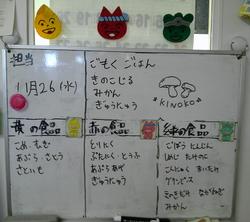 担当
11月26(水)
ごもくごはん
きのこじる
みかん
ぎゅうにゅう
"KINOKO"
黄の食品
こめ、むぎ
あぶら、さとう
さといも
赤の食品
とりにく
ぶたにく とうふ
あぶらあげ
ぎゅうにゅう
緑の食品
ごぼう にんじん
しめじ たけのこ
こんにゃく まいたけ
グリンピース
えのきだけ ながねぎ
みかん